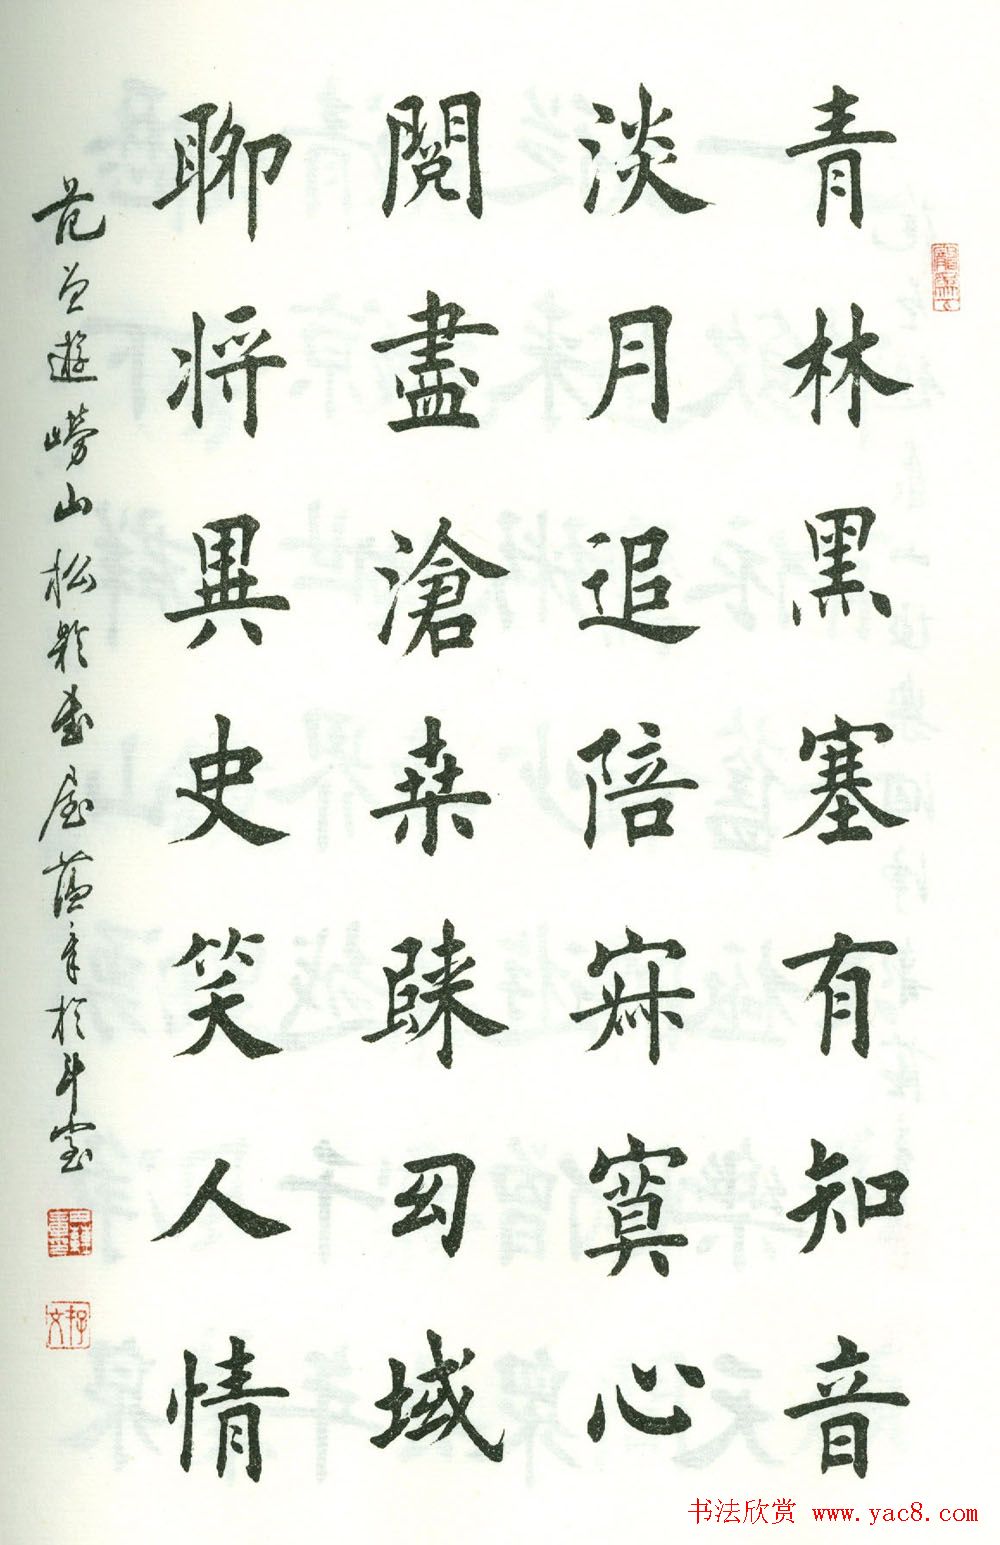 青林黑塞有知音
淡月追陪寂寞心
閱盡滄桑歸幻域
聊將異史笑人情
范曾遊嶗山松齡書屋薀章於斗室
书法欣赏 www.yac8.com